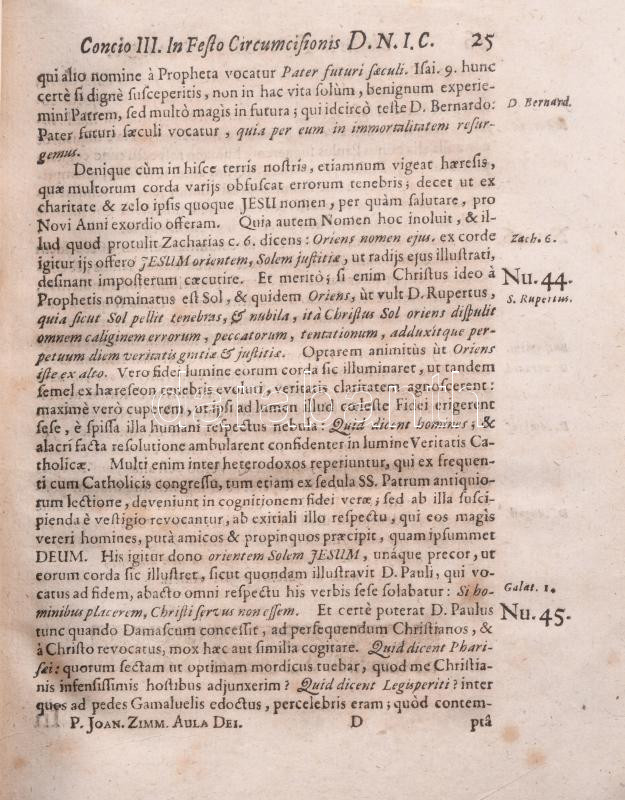 Concio III. In Feſto Circumciſionis D. N. I. C. 25
qui alio nomine à Propheta vocatur Pater futuri ſæculi. Iſai. 9. hunc
certè ſi dignè ſuſceperitis, non in hac vita ſolùm, benignum experie-
mini Patrem, ſed multò magis in futura; qui idcircò teſte D. Bernardo:
D. Bernard.
Pater futuri ſæculi vocatur, quia per eum in immortalitatem reſur-
gemus.
Denique cùm in hiſce terris noſtris, etiamnum vigeat hæreſis,
quæ multorum corda varijs obfuſcat errorum tenebris; decet ut ex
charitate & zelo ipſis quoque JESU nomen, per quàm ſalutare, pro
Novi Anni exordio offeram. Quia autem Nomen hoc inoluit, & il-
lud quod protulit Zacharias c. 6. dicens: Oriens nomen ejus. ex corde
Zach. 6.
igitur ijs offero JESUM orientem, Solem juſtitiæ, ut radijs ejus illuſtrati,
deſinant impoſterum cæcutire. Et meritò; ſi enim Chriſtus ideo à
Nu. 44.
Prophetis nominatus eſt Sol, & quidem Oriens, ùt vult D. Rupertus,
S. Rupertus.
quia ſicut Sol pellit tenebras, & nubila, ità Chriſtus Sol oriens diſpulit
omnem caliginem errorum, peccatorum, tentationum, adduxitque per-
petuum diem veritatis gratiæ & juſtitiæ. Optarem animitùs ut Oriens
iſte ex alto. Vero fidei lumine eorum corda ſic illuminaret, ut tandem
ſemel ex hæreſeon tenebris evoluti, veritatis claritatem agnoſcerent:
maximè verò cuperem, ut ipſi ad lumen illud cæleſte Fidei erigerent
ſeſe, è ſpiſſa illa humani reſpectus nebula: Quid dicent homines; &
alacri facta reſolutione ambularent confidenter in lumine Veritatis Ca-
tholicæ. Multi enim inter heterodoxos reperiuntur, qui ex frequen-
ti cum Catholicis congreſſu, tum etiam ex ſedula SS. Patrum antiquio-
rum lectione, deveniunt in cognitionem fidei veræ; ſed ab illa ſuſci-
pienda è veſtigio revocantur, ab exitiali illo reſpectu, qui eos magìs
vereri homines, putà amicos & propinquos præcipit, quam ipſummet
DEUM. His igitur dono orientem Solem JESUM, unáque precor, ut
eorum corda ſic illuſtret, ſicut quondam illuſtravit D. Pauli, qui vo-
catus ad fidem, abacto omni reſpectu his verbis ſeſe ſolabatur: Si ho-
Galat. 1.
minibus placerem, Chriſti ſervus non eſſem. Et certè poterat D. Paulus
Nu. 45.
tunc quando Damaſcum conceſſit, ad perſequendum Chriſtianos, &
à Chriſto revocatus, mox hæc aut ſimilia cogitare. Quid dicent Phari-
ſæi: quorum ſectam ut optimam mordicus tuebar, quod me Chriſtia-
nis infenſiſſimis hoſtibus adjunxerim? Quid dicent Legisperiti? inter
quos ad pedes Gamaluelis edoctus, percelebris eram; quòd contem-
P. JOAN. ZIMM. AULA DEI. D ptâ
darabanth